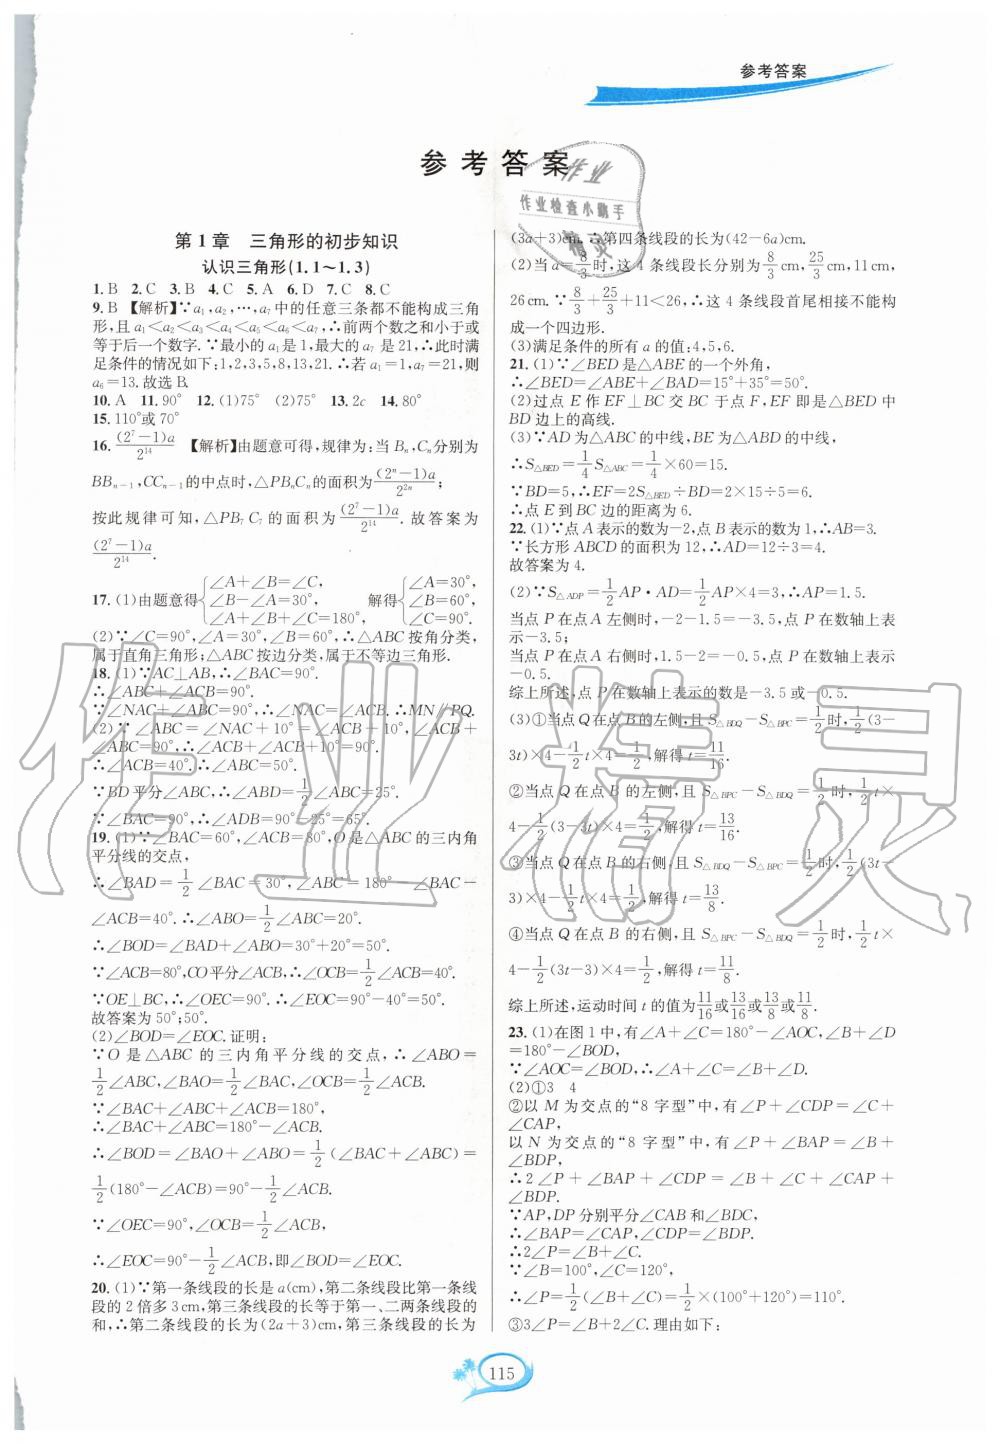 参考答案
参考答案
作业
作业检查小助手
精灵
第1章 三角形的初步知识
认识三角形(1.1～1.3)
1.B 2.C 3.B 4.C 5.A 6.D 7.C 8.C
9.B 【解析】∵a₁,a₂,…,a₇中的任意三条都不能构成三角
形,且a₁<a₂<a₃<a₄<a₅<a₆<a₇,∴前两个数之和小于或
等于后一个数字.∵最小的a₁是1,最大的a₇是21,∴此时满
足条件的情况如下:1,2,3,5,8,13,21.∴若a₁=1,a₇=21,则
a₆=13.故选B.
10.A 11.90° 12.(1)75° (2)75° 13.2c 14.80°
15.110°或70°
16.(2⁷−1)a/2¹⁴ 【解析】由题意可得,规律为:当Bₙ,Cₙ分别为
BBₙ₋₁,CCₙ₋₁的中点时,△PBₙCₙ的面积为(2ⁿ−1)a/2²ⁿ;
按此规律可知,△PB₇C₇的面积为(2⁷−1)a/2¹⁴.故答案为
(2⁷−1)a/2¹⁴.
17.(1)由题意得{∠A+∠B=∠C, ∠B−∠A=30°, ∠A+∠B+∠C=180°, 解得{∠A=30°, ∠B=60°, ∠C=90°.
(2)∵∠C=90°,∠A=30°,∠B=60°,∴△ABC按角分类,
属于直角三角形;△ABC按边分类,属于不等边三角形.
18.(1)∵AC⊥AB,∴∠BAC=90°.
∴∠ABC+∠ACB=90°.
∵∠NAC+∠ABC=90°,∴∠NAC=∠ACB.∴MN∥PQ.
(2)∵∠ABC=∠NAC+10°=∠ACB+10°,∠ACB+
∠ABC=90°,∴∠ACB+∠ACB+10°=90°.
∴∠ACB=40°.∴∠ABC=50°.
∵BD平分∠ABC,∴∠ABD=1/2∠ABC=25°.
∵∠BAC=90°,∴∠ADB=90°−25°=65°.
19.(1)∵∠BAC=60°,∠ACB=80°,O是△ABC的三内角
平分线的交点,
∴∠BAD=1/2∠BAC=30°,∠ABC=180°−∠BAC−
∠ACB=40°.∴∠ABO=1/2∠ABC=20°.
∴∠BOD=∠BAD+∠ABO=30°+20°=50°.
∵∠ACB=80°,CO平分∠ACB,∴∠OCB=1/2∠ACB=40°.
∵OE⊥BC,∴∠OEC=90°.∴∠EOC=90°−40°=50°.
故答案为50°;50°.
(2)∠BOD=∠EOC.证明:
∵O是△ABC的三内角平分线的交点,∴∠ABO=
1/2∠ABC,∠BAO=1/2∠BAC,∠OCB=1/2∠ACB.
∵∠BAC+∠ABC+∠ACB=180°,
∴∠BAC+∠ABC=180°−∠ACB.
∴∠BOD=∠BAO+∠ABO=1/2(∠BAC+∠ABC)=
1/2(180°−∠ACB)=90°−1/2∠ACB.
∵∠OEC=90°,∠OCB=1/2∠ACB,
∴∠EOC=90°−1/2∠ACB,即∠BOD=∠EOC.
20.(1)∵第一条线段的长是a(cm),第二条线段比第一条线
段的2倍多3cm,第三条线段的长等于第一、二两条线段的
和,∴第二条线段的长为(2a+3)cm,第三条线段的长为
(3a+3)cm.∴第四条线段的长为(42−6a)cm.
(2)当a=8/3时,这4条线段长分别为8/3cm,25/3cm,11cm,
26cm.∵8/3+25/3+11<26,∴这4条线段首尾相接不能构
成一个四边形.
(3)满足条件的所有a的值:4,5,6.
21.(1)∵∠BED是△ABE的一个外角,
∴∠BED=∠ABE+∠BAD=15°+35°=50°.
(2)过点E作EF⊥BC交BC于点F,EF即是△BED中
BD边上的高线.
(3)∵AD为△ABC的中线,BE为△ABD的中线,
∴S△BED=1/4S△ABC=1/4×60=15.
∵BD=5,∴EF=2S△BED÷BD=2×15÷5=6.
∴点E到BC边的距离为6.
22.(1)∵点A表示的数为−2,点B表示的数为1,∴AB=3.
∵长方形ABCD的面积为12,∴AD=12÷3=4.
故答案为4.
(2)∵S△ADP=1/2AP·AD=1/2AP×4=3,∴AP=1.5.
当点P在点A左侧时,−2−1.5=−3.5,点P在数轴上表
示−3.5;
当点P在点A右侧时,1.5−2=−0.5,点P在数轴上表示
−0.5.
综上所述,点P在数轴上表示的数是−3.5或−0.5.
(3)①当点Q在点B的左侧,且S△BDQ−S△BPC=1/2时,1/2(3−
3t)×4−1/2t×4=1/2,解得t=11/16.
②当点Q在点B的左侧,且S△BPC−S△BDQ=1/2时,1/2t×
4−1/2(3−3t)×4=1/2,解得t=13/16.
③当点Q在点B的右侧,且S△BDQ−S△BPC=1/2时,1/2(3t−
3)×4−1/2t×4=1/2,解得t=13/8.
④当点Q在点B的右侧,且S△BPC−S△BDQ=1/2时,1/2t×
4−1/2(3t−3)×4=1/2,解得t=11/8.
综上所述,运动时间t的值为11/16或13/16或13/8或11/8.
23.(1)在图1中,有∠A+∠C=180°−∠AOC,∠B+∠D
=180°−∠BOD,
∵∠AOC=∠BOD,∴∠A+∠C=∠B+∠D.
(2)①3 4
②以M为交点的“8字型”中,有∠P+∠CDP=∠C+
∠CAP,
以N为交点的“8字型”中,有∠P+∠BAP=∠B+
∠BDP,
∴2∠P+∠BAP+∠CDP=∠B+∠C+∠CAP+
∠BDP.
∵AP,DP分别平分∠CAB和∠BDC,
∴∠BAP=∠CAP,∠CDP=∠BDP.
∴2∠P=∠B+∠C.
∵∠B=100°,∠C=120°,
∴∠P=1/2(∠B+∠C)=1/2×(100°+120°)=110°.
③3∠P=∠B+2∠C.理由如下:
115
作业精灵